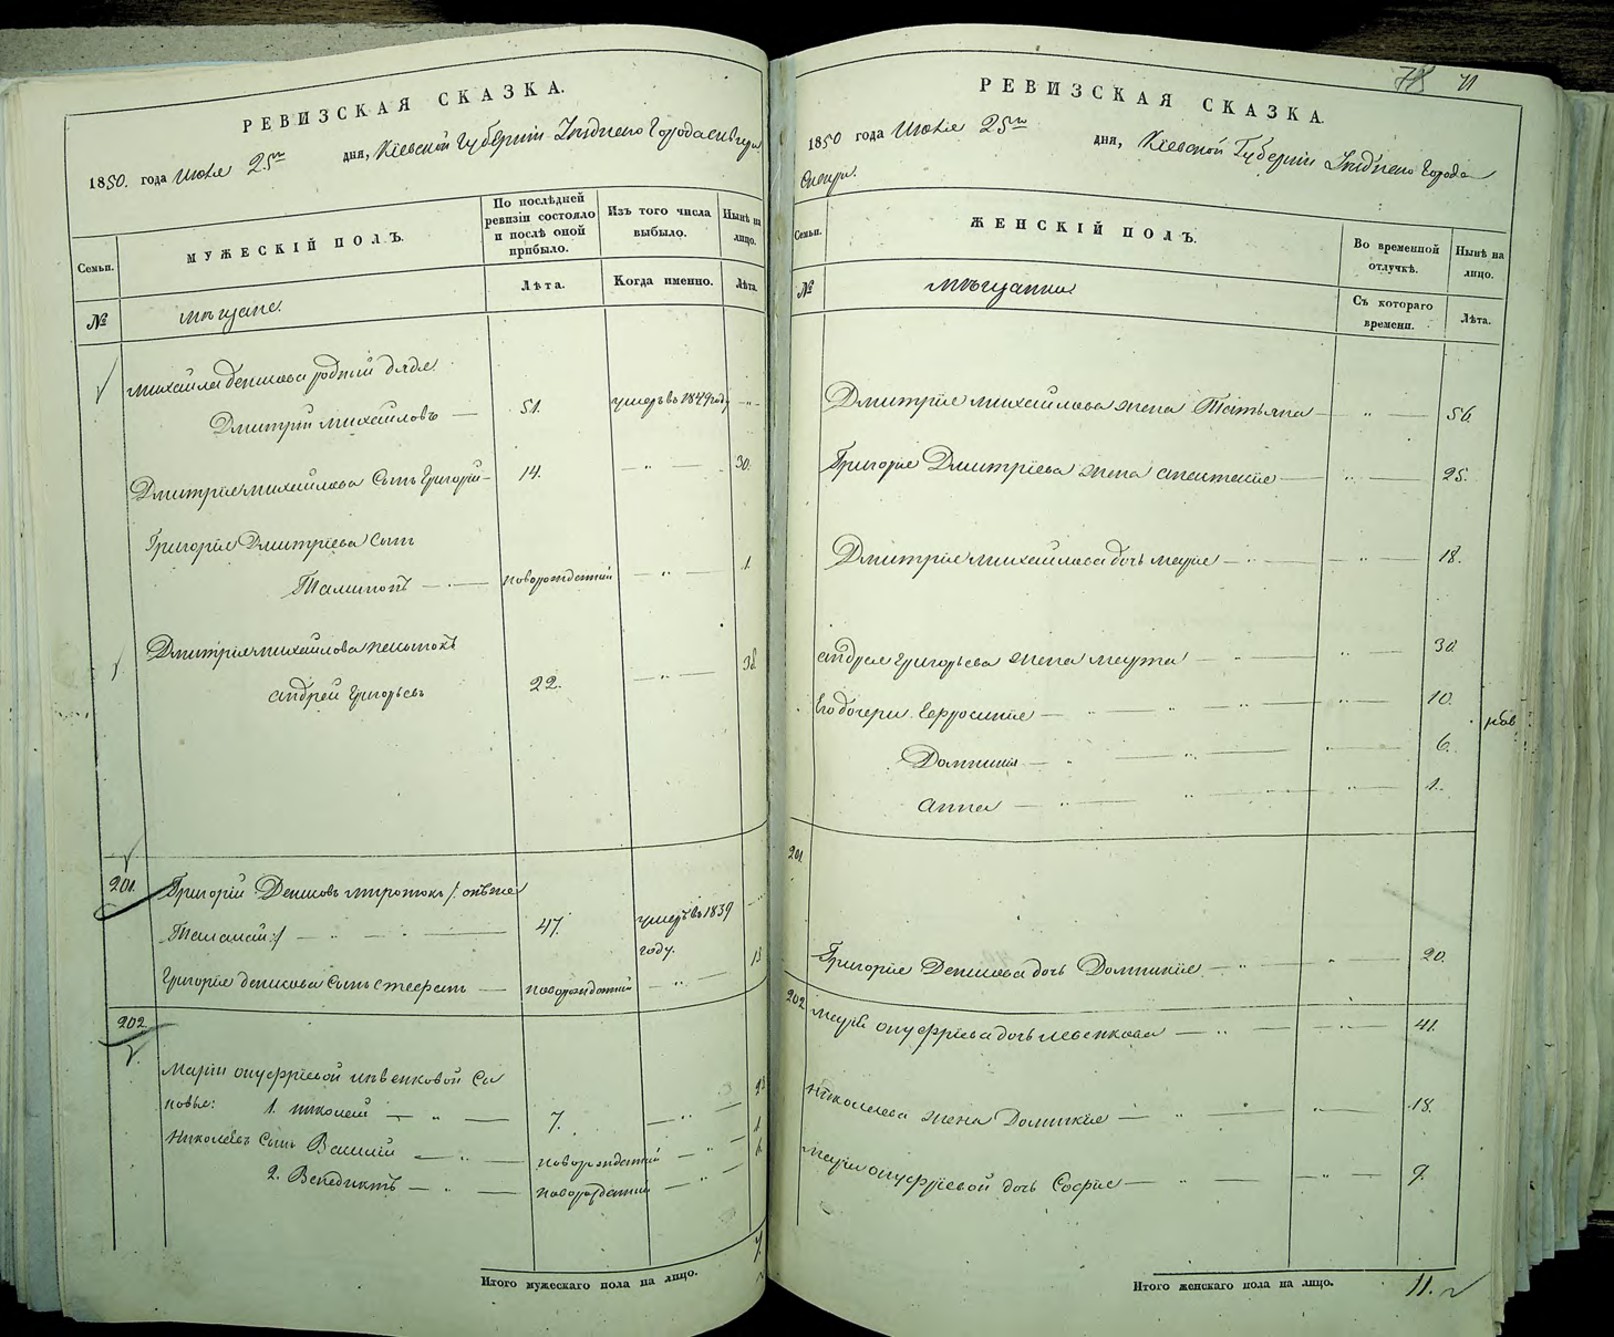 РЕВИЗСКАЯ СКАЗКА.
1850. года Июля 25го дня, Кіевской Губерніи Города Сквиры
Семьи.
МУЖЕСКІЙ ПОЛЪ.
По послѣдней ревизіи состояло и послѣ оной прибыло.
Изъ того числа выбыло.
Нынѣ на лицо.
№
мѣщане.
Лѣта.
Когда именно.
Лѣта.
Михайла Денисова родный дядя
Дмитрій Михайловъ — 51. умеръ въ 1849 году — „ —
Дмитрія Михайлова сынъ Григорій — 14. — „ — 30.
Григорія Дмитріева сынъ
— новорожденный — „ — 1.
Дмитрія Михайлова
Андрей Григорьевъ 22. — „ — 38.
201.
Григорій Денисовъ /: онъ же
:/ — „ — 47. умеръ въ 1839 году.
Григорія Денисова сынъ Стефанъ — новорожденный — „ —
202.
Маріи Онуфріевой Сы
новья: 1. Николай — „ — 7. — „ —
Николаевъ сынъ Василій — „ — новорожденный — „ —
2. Венедиктъ — „ — новорожденный — „ —
Итого мужескаго пола на лицо. 7.
78 71
РЕВИЗСКАЯ СКАЗКА.
1850 года Июля 25го дня, Кіевской Губерніи Города
Сквиры.
Семьи.
ЖЕНСКІЙ ПОЛЪ.
Во временной отлучкѣ.
Нынѣ на лицо.
№
мѣщанки.
Съ котораго времени.
Лѣта.
Дмитрія Михайлова жена Татьяна — „ — 56.
Григорія Дмитріева жена Анастасія — „ — 25.
Дмитрія Михайлова дочь Марія — „ — 18.
Андрея Григорьева жена Марта — „ — 30.
Его дочери Ефросинія — „ — 10.
Домникія — „ — 6.
Анна — „ — 1.
201.
Григорія Денисова дочь Домникія — „ — 20.
202.
Марія Онуфріева дочь Левенкова — „ — 41.
Николаева жена Домникія — „ — 18.
Маріи Онуфріевой дочь Софія — „ — 9.
Итого женскаго пола на лицо. 11.